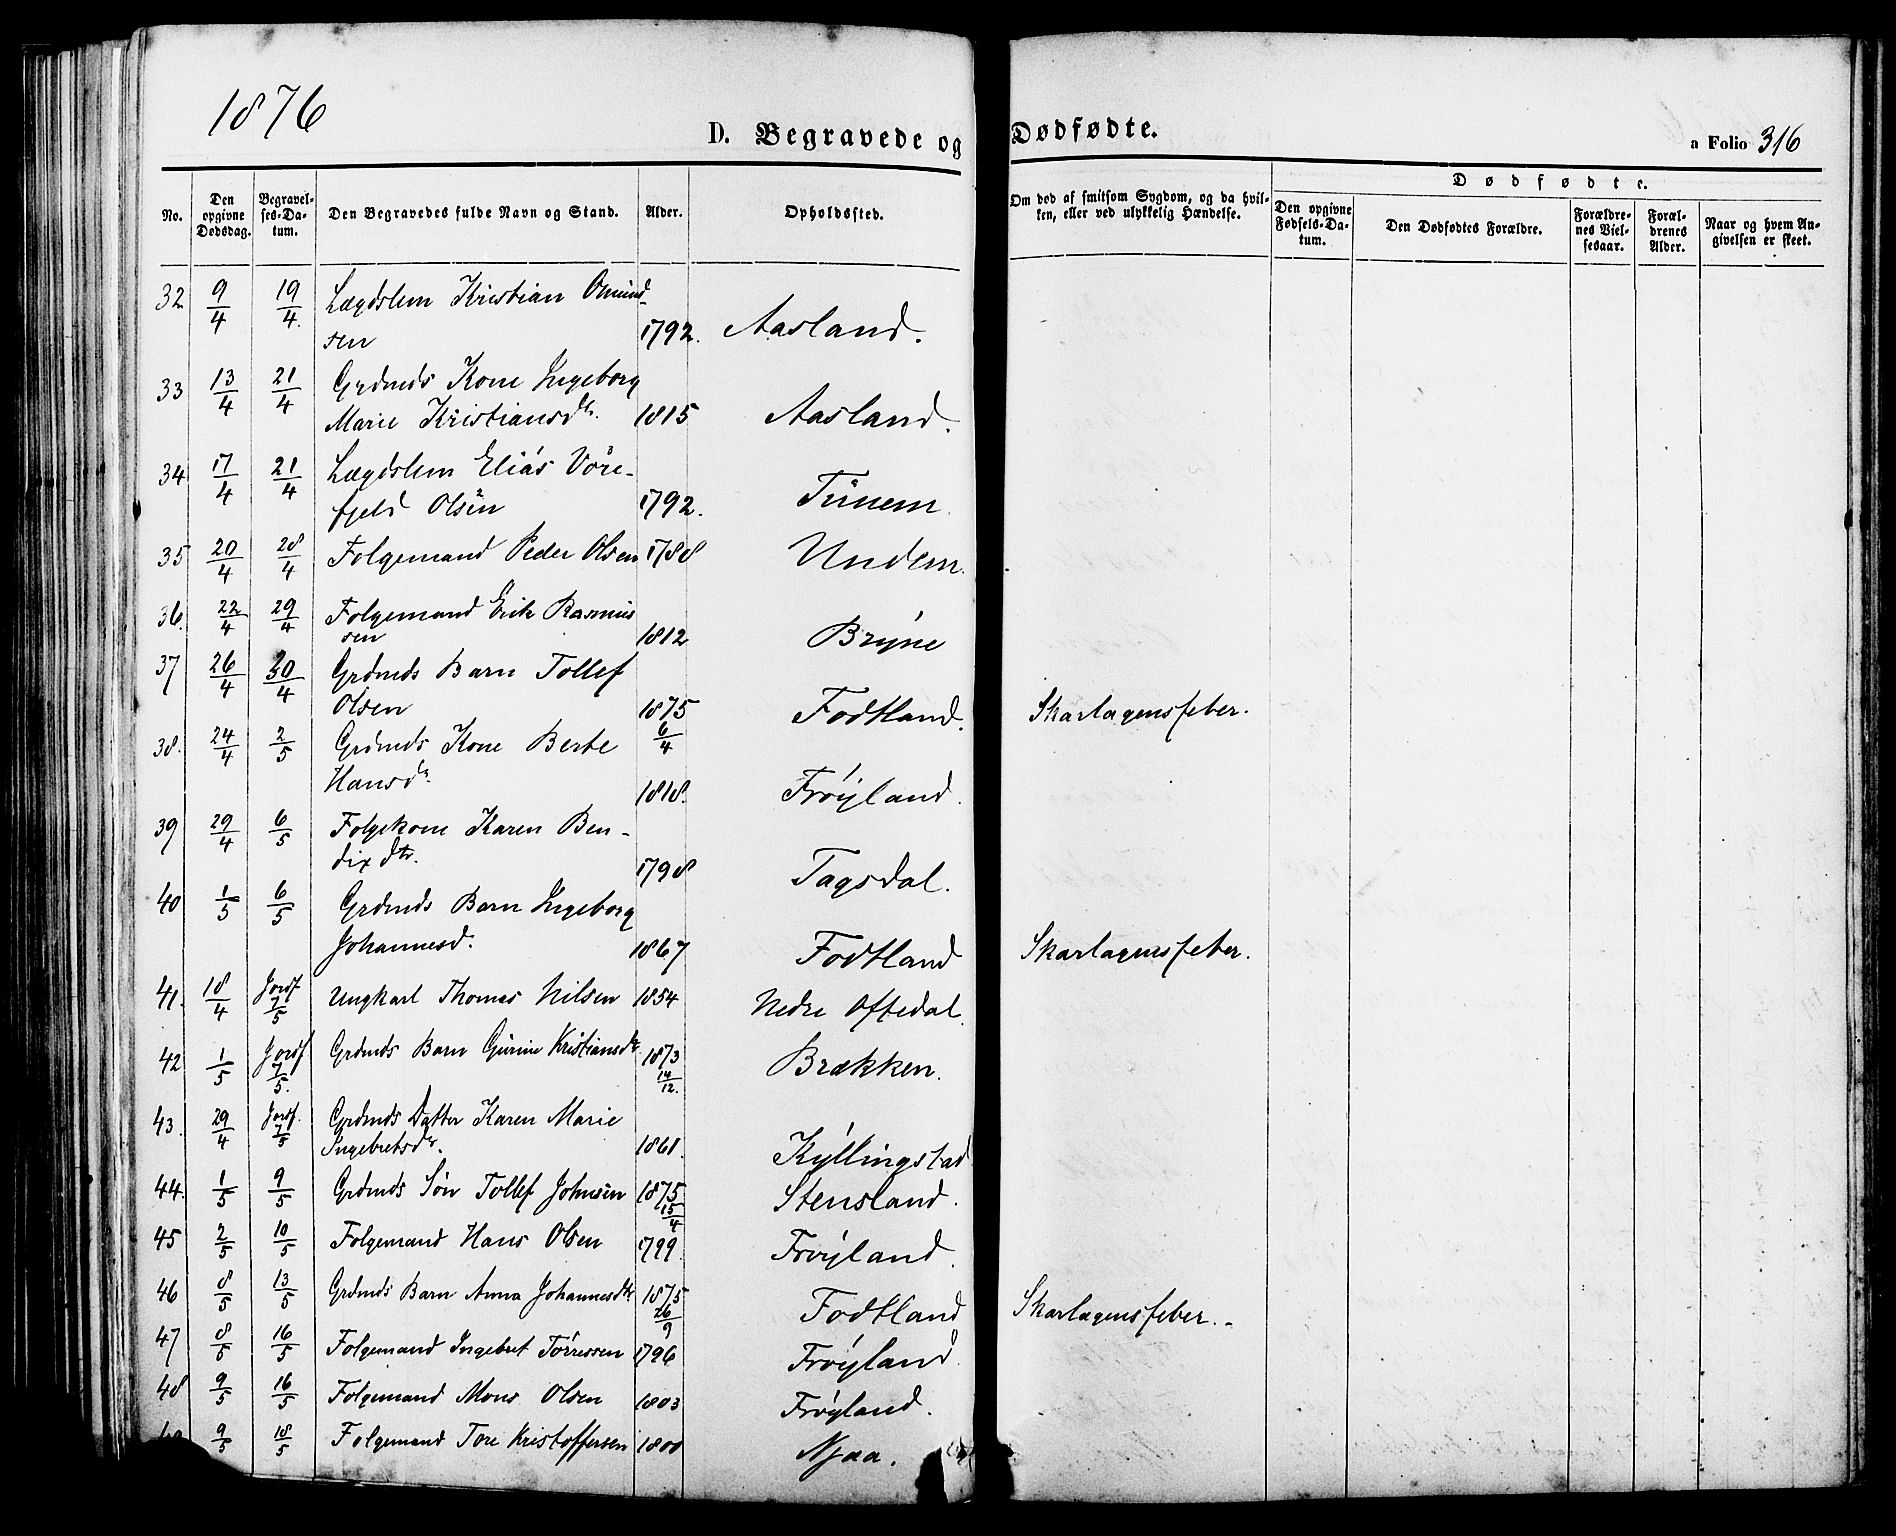 1876
D. Begravede og Dødfødte.
a Folio 316
No.
Den opgivne Dødsdag.
Begravelses-Datum.
Den Begravedes fulde Navn og Stand.
Alder.
Opholdssted.
Om død af smitsom Sygdom, og da hvilken, eller ved ulykkelig Hændelse.
Dødfødte.
Den opgivne Fødsels-Datum.
Den Dødfødtes Forældre.
Forældrenes Vielsesaar.
Forældrenes Alder.
Naar og hvem Angivelsen er skeet.
32 9/4 19/4. Lægdslem Kristian Omund-
sen 1792. Aasland.
33 13/4 21/4 Grdmds Kone Ingeborg
Marie Kristiansdtr. 1815 Aasland.
34 17/4 21/4 Lægdslem Elias Vore-
fjeld Olsen 1792. Tunem
35 20/4 28/4 Folgemand Peder Olsen 1788 Undem.
36. 22/4 29/4 Folgemand Erik Rasmus
sen 1812 Bryne
37 26/4 30/4 Grdmds Barn Tollef
Olsen 1875 6/4 Fodtland. Skarlagensfeber.
38. 24/4 2/5 Grdmds Kone Berte
Hansdr. 1818. Frøyland.
39 29/4 6/5 Folgekone Karen Ben-
dixdtr. 1798 Tagsdal.
40 1/5 6/5 Grdmds Barn Ingeborg
Johannesd. 1867 Fodtland Skarlagensfeber.
41. 18/4 Jordf 7/5 Ungkarl Thomas Nilsen 1854 Nedre Oftedal.
42 1/5 Jordf 7/5. Grdmds Barn Gurine Kristiansdtr 1873 14/12. Brækken.
43. 29/4 Jordf. 7/5 Grdmds Datter Karen Marie
Ingebretsdr. 1861. Kyllingstad
44. 1/5 9/5 Grdmds Søn Tollef Johnsen 1875 15/4 Stensland.
45 2/5 10/5 Folgemand Hans Olsen 1799 Frøyland.
46 8/5 13/5 Grdmds Barn Anna Johannesdtr 1875 26/9 Fodtland Skarlagensfeber.-
47 8/5 16/5 Folgemand Ingebret Tørressen 1796 Frøyland.
48 9/5 16/5 Folgemand Mons Olsen 1803 Frøyland.
9/5 18/5 Folgemand Tore Kristoffersen 1800 Njaa.